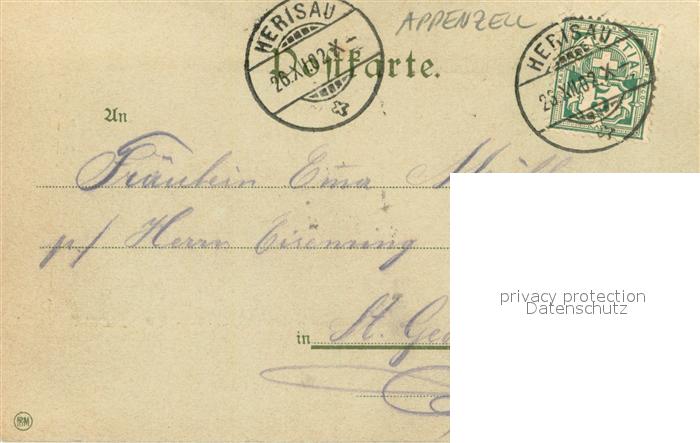 HERISAU
26.XII.02.X–
APPENZELL
HERISAU
26.XII.02.X–
Postkarte.
An
Fräulein Emma
p/ Herrn Eisenring
in St. Geo
privacy protection
Datenschutz